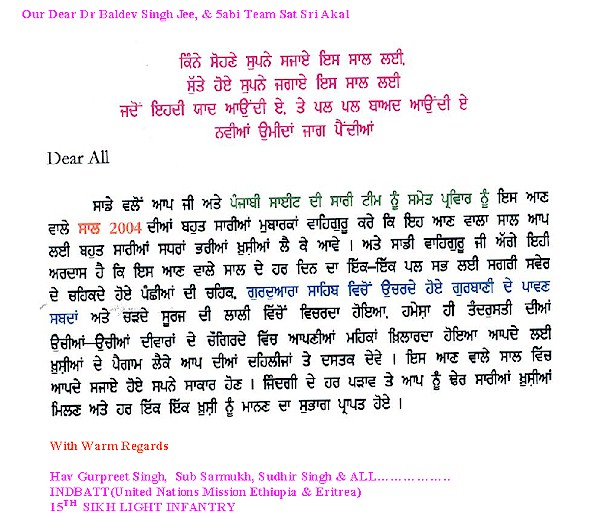 Our Dear Dr Baldev Singh Jee, & 5abi Team Sat Sri Akal
ਕਿੰਨੇ ਸੋਹਣੇ ਸੁਪਨੇ ਸਜਾਏ ਇਸ ਸਾਲ ਲਈ,
ਸੁੱਤੇ ਹੋਏ ਸੁਪਨੇ ਜਗਾਏ ਇਸ ਸਾਲ ਲਈ
ਜਦੋਂ ਇਹਦੀ ਯਾਦ ਆਉਂਦੀ ਏ, ਤੇ ਪਲ ਪਲ ਬਾਅਦ ਆਉਂਦੀ ਏ
ਨਵੀਆਂ ਉਮੀਦਾਂ ਜਾਗ ਪੈਂਦੀਆਂ
Dear All
ਸਾਡੇ ਵਲੋਂ ਆਪ ਜੀ ਅਤੇ ਪੰਜਾਬੀ ਸਾਈਟ ਦੀ ਸਾਰੀ ਟੀਮ ਨੂੰ ਸਮੇਤ ਪ੍ਰਵਿਾਰ ਨੂੰ ਇਸ ਆਣ
ਵਾਲੇ ਸਾਲ 2004 ਦੀਆਂ ਬਹੁਤ ਸਾਰੀਆਂ ਮੁਬਾਰਕਾਂ ਵਾਹਿਗੁਰੂ ਕਰੇ ਕਿ ਇਹ ਆਣ ਵਾਲਾ ਸਾਲ ਆਪ
ਲਈ ਬਹੁਤ ਸਾਰੀਆਂ ਸਧਰਾਂ ਭਰੀਆਂ ਖ਼ੁਸ਼ੀਆਂ ਲੈ ਕੇ ਆਵੇ । ਅਤੇ ਸਾਡੀ ਵਾਹਿਗੁਰੂ ਜੀ ਅੱਗੇ ਇਹੀ
ਅਰਦਾਸ ਹੈ ਕਿ ਇਸ ਆਣ ਵਾਲੇ ਸਾਲ ਦੇ ਹਰ ਦਿਨ ਦਾ ਇੱਕ–ਇੱਕ ਪਲ ਸਭ ਲਈ ਸਗਰੀ ਸਵੇਰ
ਦੇ ਚਹਿਕਦੇ ਹੋਏ ਪੰਛੀਆਂ ਦੀ ਚਹਿਕ, ਗੁਰਦੁਆਰਾ ਸਾਹਿਬ ਵਿਚੋਂ ਉਚਰਦੇ ਹੋਏ ਗੁਰਬਾਣੀ ਦੇ ਪਾਵਣ
ਸਬਦਾਂ ਅਤੇ ਚੜਦੇ ਸੂਰਜ ਦੀ ਲਾਲੀ ਵਿੱਚੋਂ ਵਿਚਰਦਾ ਹੋਇਆ, ਹਮੇਸ਼ਾ ਹੀ ਤੰਦਰੁਸਤੀ ਦੀਆਂ
ਉਚੀਆਂ–ਉਚੀਆਂ ਦੀਵਾਰਾਂ ਦੇ ਚੌਗਿਰਦੇ ਵਿੱਚ ਆਪਣੀਆਂ ਮਹਿਕਾਂ ਖ਼ਿਲਾਰਦਾ ਹੋਇਆ ਆਪਦੇ ਲਈ
ਖ਼ੁਸ਼ੀਆਂ ਦੇ ਪੈਗਾਮ ਲੈਕੇ ਆਪ ਦੀਆਂ ਦਹਿਲੀਜਾਂ ਤੇ ਦਸਤਕ ਦੇਵੇ । ਇਸ ਆਣ ਵਾਲੇ ਸਾਲ ਵਿੱਚ
ਆਪਦੇ ਸਜਾਏ ਹੋਏ ਸਪਨੇ ਸਾਕਾਰ ਹੋਣ । ਜਿੰਦਗੀ ਦੇ ਹਰ ਪੜਾਵ ਤੇ ਆਪ ਨੂੰ ਢੇਰ ਸਾਰੀਆਂ ਖ਼ੁਸ਼ੀਆਂ
ਮਿਲਣ ਅਤੇ ਹਰ ਇੱਕ ਇੱਕ ਖ਼ੁਸ਼ੀ ਨੂੰ ਮਾਨਣ ਦਾ ਸੁਭਾਗ ਪ੍ਰਾਪਤ ਹੋਏ ।
With Warm Regards
Hav Gurpreet Singh, Sub Sarmukh, Sudhir Singh & ALL................
INDBATT(United Nations Mission Ethiopia & Eritrea)
15TH SIKH LIGHT INFANTRY